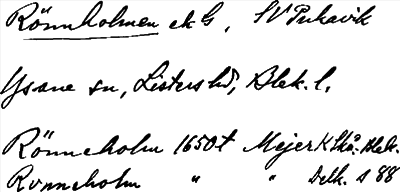 Rönnholmen ek G, SV Pukavik
Ysane sn, Listers hd, Blek. l.
Rönneholm 1650t Mejer K Skå. Blek.
Ronneholm " " Delk. s 88